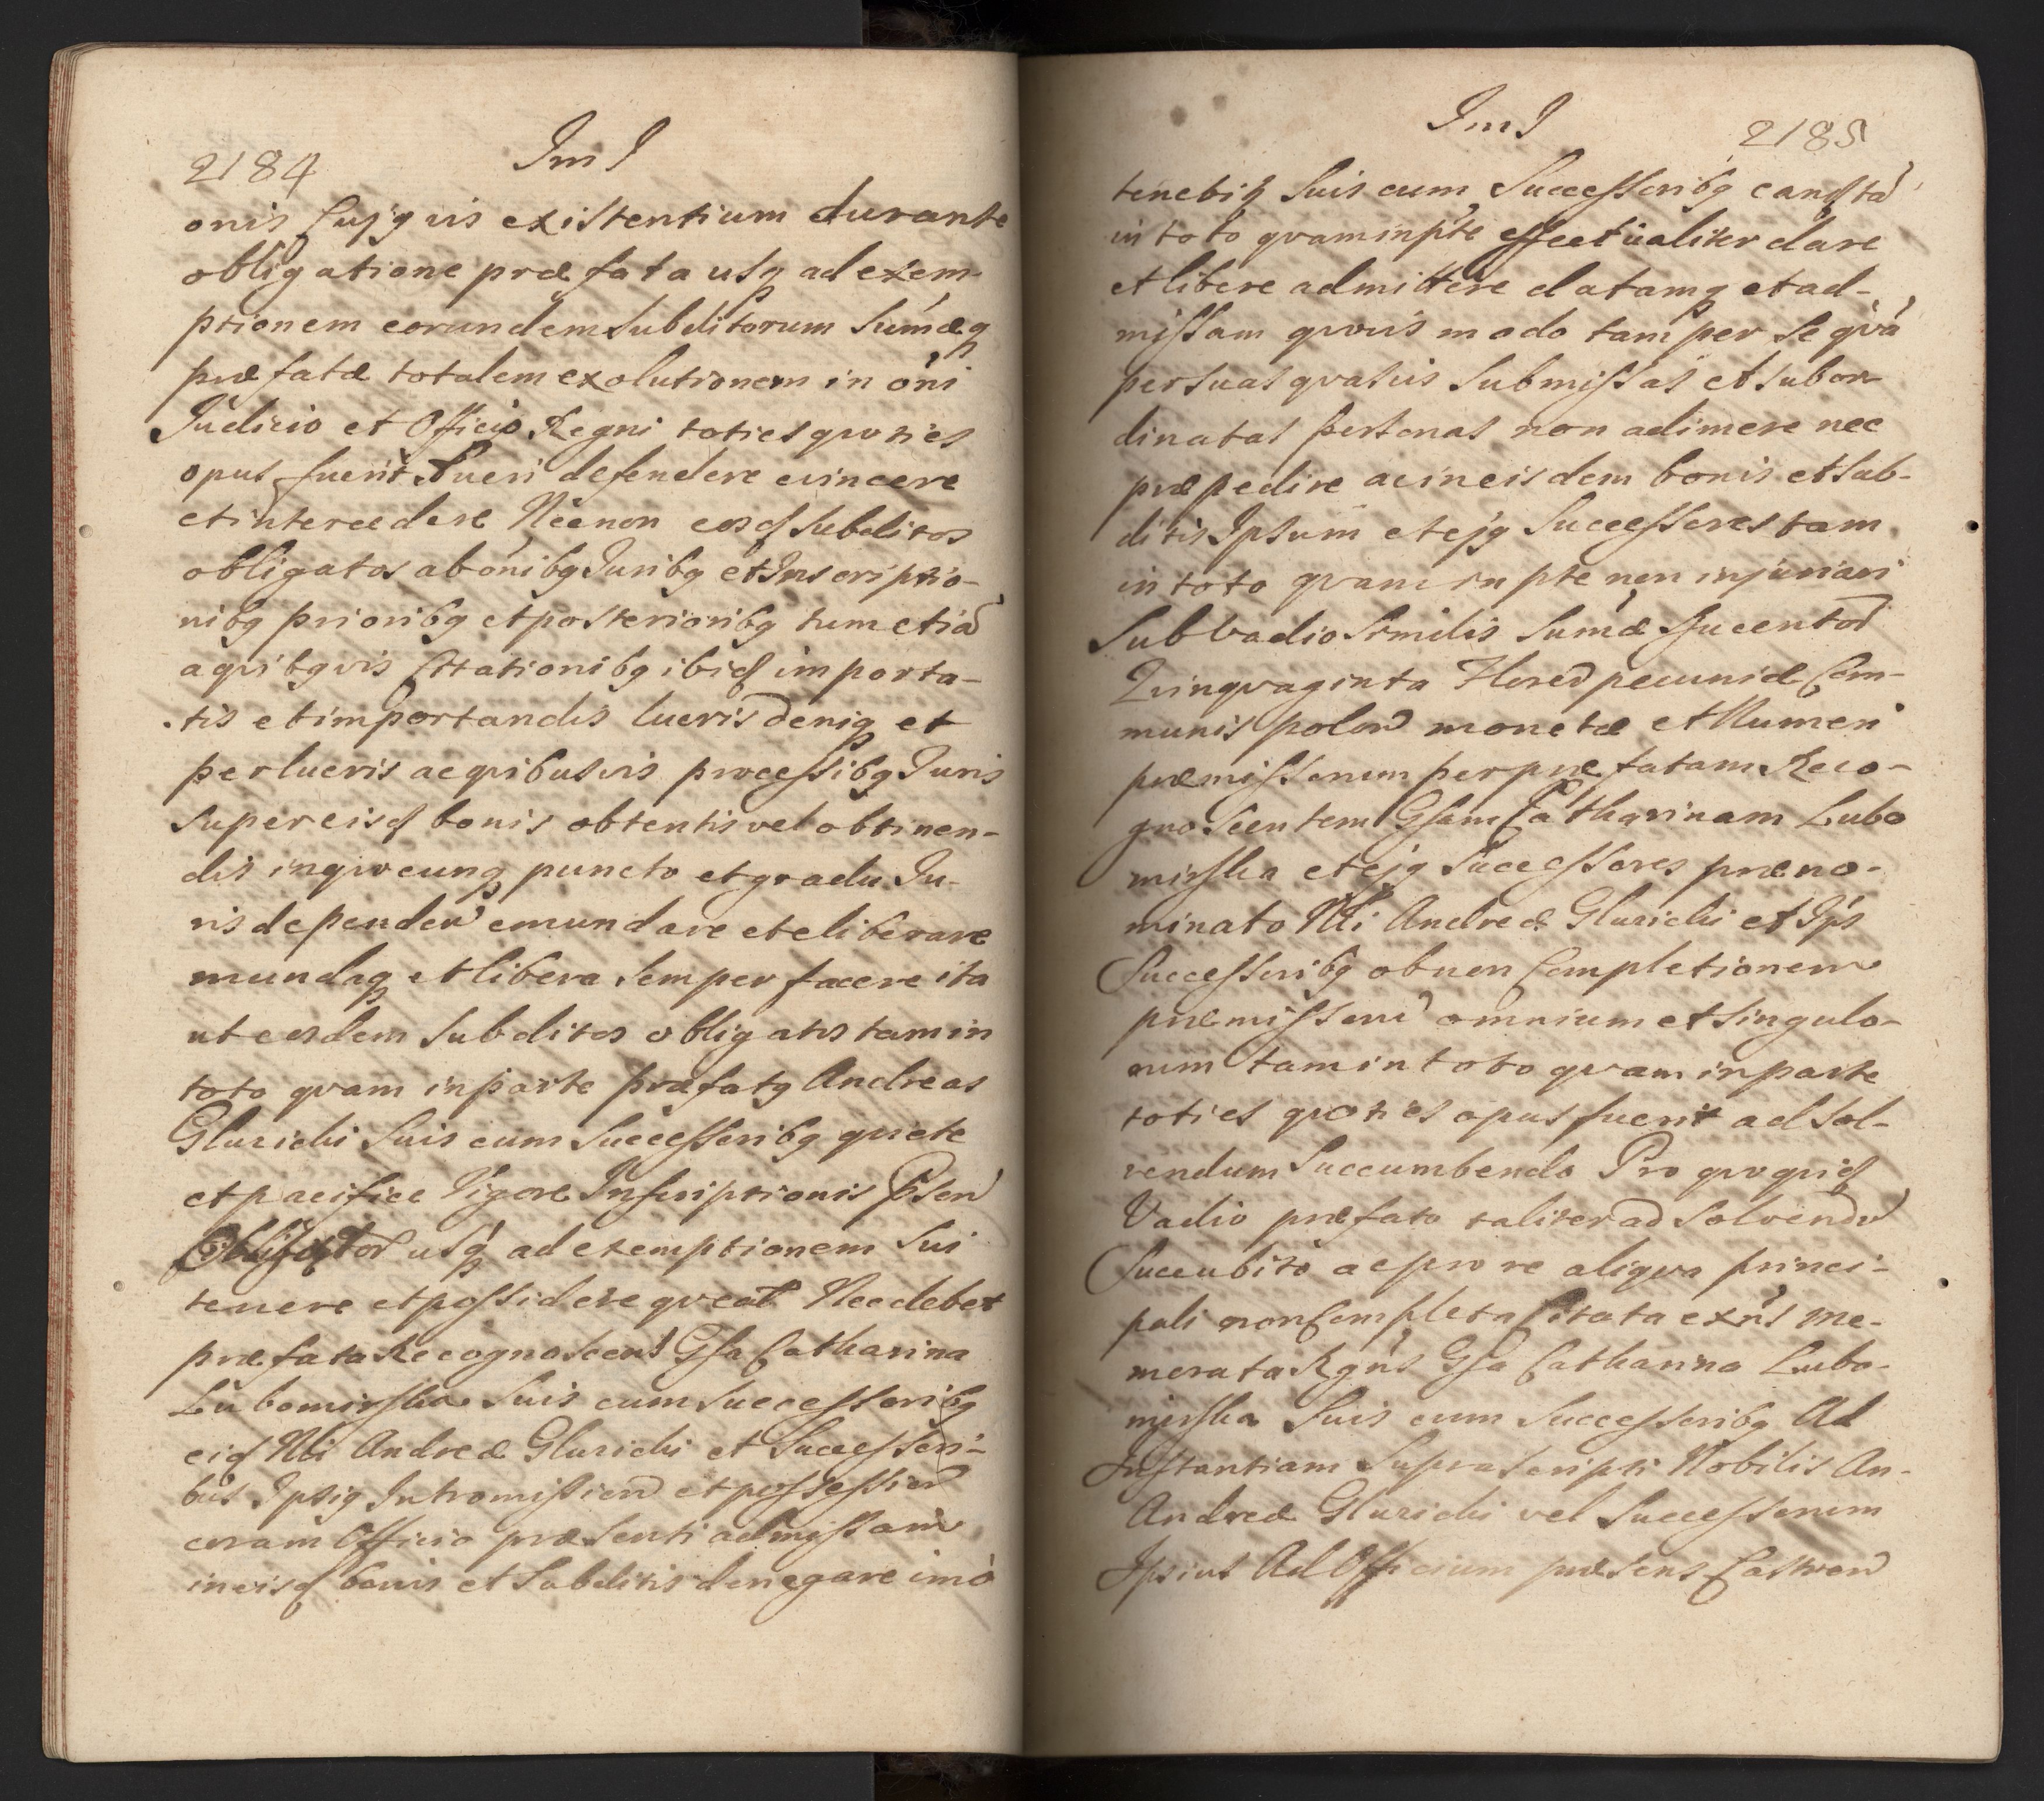 2184
Im I
onis cujqvis existentium durante
obligatione præfata usq ad exem-
ptionem eorundem subditorum sumæq
præfatæ totalem exolutionem in oni
Judicio et Officio Regni toties qvoties
opus fuerit Tueri defendere evincere
et intercedere Necnon eosd subditos
obligatos ab onibg Juribg et Inscriptio-
nibg prioribg et posterioribg tum etia
a qvibgvis Attationibg ibid importa-
tis et importandis lucris deniq et
perlucris ac qvibusvis processibg Juris
super eisd bonis obtentis vel obtinen-
dis in qvocunq puncto et gradu Ju-
ris dependen emundare et eliberare
mundaq et libera semper facere ita
ut eosdem subditos obligatos tam in
toto qvam in parte præfatg Andreas
Glurichi suis cum successoribg qviete
et pacifice Vigore Inscriptionis Psen
usq ad exemptionem sui
tenere et possidere qveat Nec debet
præfata Recognoscens Gsa Catharina
Lubomirska suis cum successoribg
eid Nli Andreæ Glurichi et Successori-
bus Ipsig Intromission et possession
coram Officio præsenti admissam
in eisd bonis et subditis denegare imo
2185
Im I
tenebit suis cum Successoribg eand ta
in toto qvam in pte effectualiter dare
et libere admittere datamq et ad-
missam qvovis modo tam per se qva
per suas qvasvis submissas et subor-
dinatas personas non adimere nec
præpedire ac in eisdem bonis et sub-
ditis Ipsum et ejg Successores tam
in toto qvam in pte non injuriari
Sub vadio similis sumæ Ducentor
Qvinqvaginta floren pecuniæ Com-
munis polon monetæ et Numeri
præmissorum per præfatam Reco-
gnoscentem Gsam Catharinam Lubo
mirska et ejg Successores præno-
minato Nli Andreæ Glurichi et Ips
Successoribg ob non Completionem
præmissor omnium et singulo-
rum tam in toto qvam in parte
toties qvoties opus fuerit ad sol-
vendum succumbendo Pro qvo qvid
Vadio præfato taliter ad solvend
succubito ac pro re aliqva princi-
pali non Completa Citata exns me-
morata Rgns Gsa Catharina Lubo-
mirska Suis cum Successoribg Ad
Instantiam Suprascripti Nobilis An-
Andreæ Glurichi vel Successorum
Ipsius Ad Officium præsens Castren